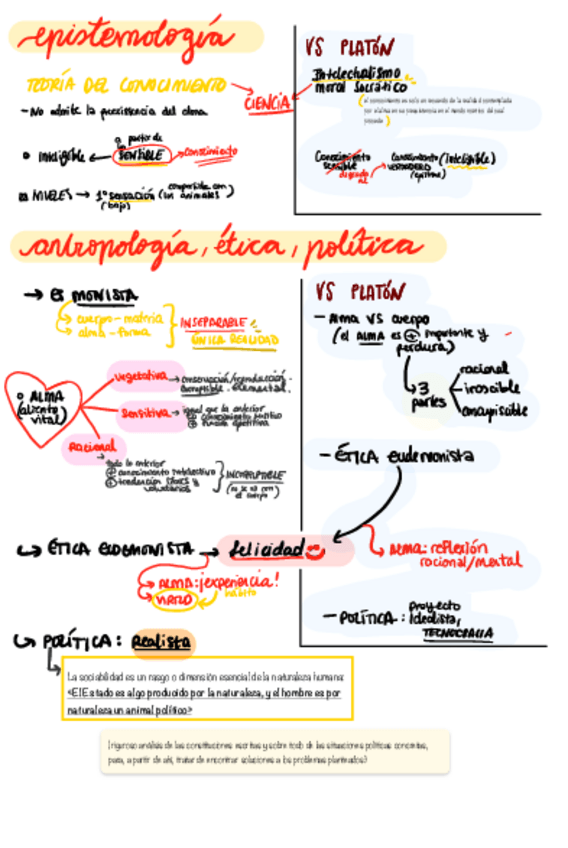 epistemología
TEORÍA DEL CONOCIMIENTO
CIENCIA
- No admite la preexistencia del alma
a partir de
inteligible ← SENSIBLE → conocimiento
NIVELES → 1º sensación (compartida con los animales)
(bajo)
VS PLATÓN
Intelectualismo
moral socrático
(el conocimiento es solo un recuerdo de la realidad contemplada
por el alma en su preexistencia en el mundo
pasado)
Conocimiento
sensible
Conocimiento (inteligible)
verdadero
antropología, ética, política
→ es MONISTA
cuerpo - materia
alma - forma
INSEPARABLE
ÚNICA REALIDAD
ALMA
(aliento
vital)
vegetativa → conservación/reproducción.
elemental.
Sensitiva → igual que la anterior
+ conocimiento sensitivo
+ apetitiva
Racional
todo lo anterior
+ conocimiento intelectivo
+ tendencias
voluntarios
INCORRUPTIBLE
VS PLATÓN
- Alma VS cuerpo
(el ALMA es + importante y
perdura)
3
partes
racional
irascible
concupiscible
- ÉTICA eudemonista
ÉTICA EUDEMONISTA → felicidad
→ ALMA: ¡experiencia!
hábito
→ ALMA: reflexión
racional/mental
- POLÍTICA: proyecto
idealista,
TECNOCRACIA
POLÍTICA: Realista
La sociabilidad es un rasgo o dimensión esencial de la naturaleza humana:
«El Estado es algo producido por la naturaleza, y el hombre es por
naturaleza un animal político»
(riguroso análisis de las constituciones escritas y sobre todo de las situaciones políticas concretas,
para, a partir de ahí, tratar de encontrar soluciones a los problemas planteados)